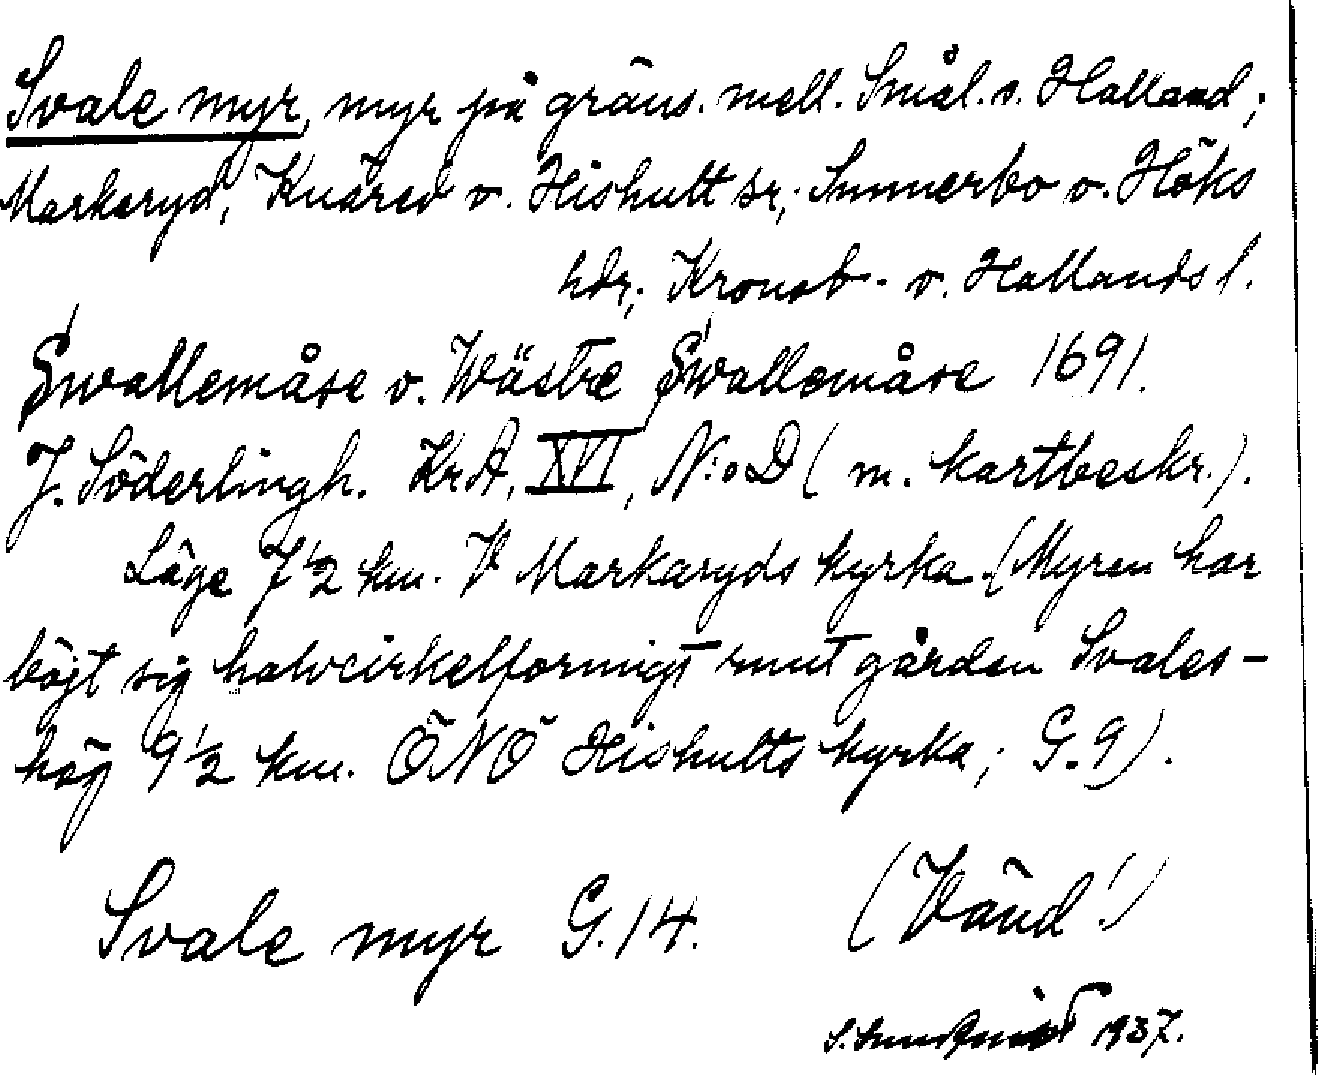 Svale myr, myr på gräns. mell. Smål. o. Halland;
Markaryd, Knäred o. Hishult sr; Sunnerbo o. Höks
hdr; Kronob- o. Hallands l.
Swallemåse o. Wästre Swallemåse 1691.
J. Söderlingh. KrA, XVI, N:o D (m. kartbeskr.).
Läge 7 1/2 km. V Markaryds kyrka. (Myren har
böjt sig halvcirkelformigt runt gården Svales-
hög 9 1/2 km. ÖNÖ Hishults kyrka; G. 9).
Svale myr G. 14. (Vänd!)
1937.